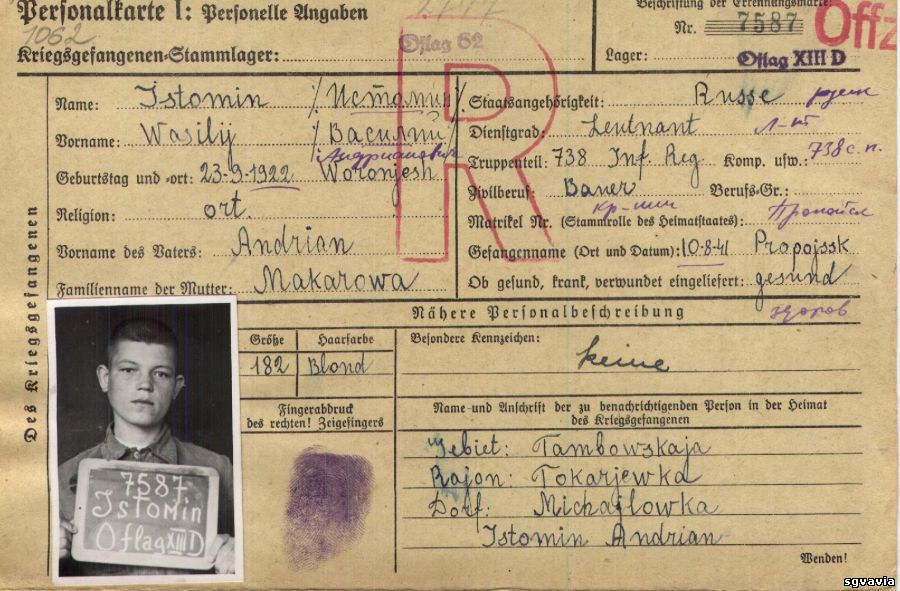 Personalkarte I: Personelle Angaben
Beschriftung der Erkennungsmarke
1062
Nr. 7587
Offz
Kriegsgefangenen-Stammlager:
Oflag 62
Lager: Oflag XIII D
R
Des Kriegsgefangenen
Name: Istomin / Истомин /
Staatsangehörigkeit: Russe русск
Vorname: Wasilij / Василий /
Dienstgrad: Leutnant Л-т
Андрианович
Truppenteil: 738 Inf. Reg. Komp. usw.: 738 с.п.
Geburtstag und -ort: 23-9-1922 Woronjesh
Zivilberuf: Bauer Berufs-Gr.:
кр-нин
Religion: ort.
Matrikel Nr. (Stammrolle des Heimatstaates): Пропойск
Vorname des Vaters: Andrian
Gefangennahme (Ort und Datum): 10-8-41 Propojssk
Familienname der Mutter: Makarowa
Ob gesund, krank, verwundet eingeliefert: gesund
здоров
Nähere Personalbeschreibung
Größe Haarfarbe
182 Blond
Besondere Kennzeichen:
keine
Fingerabdruck
des rechten! Zeigefingers
Name und Anschrift der zu benachrichtigenden Person in der Heimat
des Kriegsgefangenen
Gebiet: Tambowskaja
Rajon: Tokarjewka
Dorf: Michajlowka
Istomin Andrian
Wenden!
7587
Istomin
Oflag XIII D
sgvavia